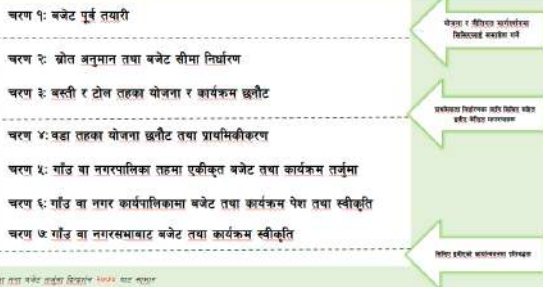 चरण १: बजेट पूर्व तयारी
चरण २: स्रोत अनुमान तथा बजेट सीमा निर्धारण
चरण ३: बस्ती र टोल तहका योजना र कार्यक्रम छनौट
चरण ४: वडा तहका योजना छनौट तथा प्राथमिकीकरण
चरण ५: गाँउ वा नगरपालिका तहमा एकीकृत बजेट तथा कार्यक्रम तर्जुमा
चरण ६: गाँउ वा नगर कार्यपालिकामा बजेट तथा कार्यक्रम पेश तथा स्वीकृति
चरण ७: गाँउ वा नगरसभाबाट बजेट तथा कार्यक्रम स्वीकृति
योजना र नीतिगत मार्गदर्शनमा
समावेश गर्ने
तथा बजेट तर्जुमा दिग्दर्शन